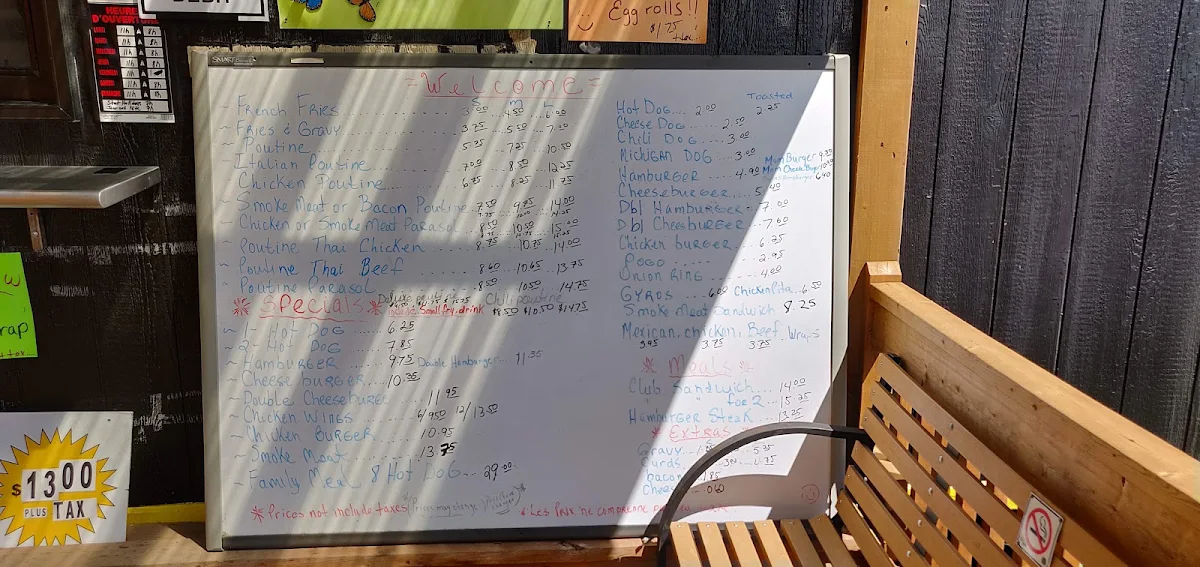 HEURES
D'OUVERTURE
Egg rolls!!
$1.75
+tax
SMART
Welcome
S M L
~ French Fries 3.00 4.50 6.00
~ Fries & Gravy 3.75 5.50 7.00
~ Poutine 5.75 7.25 10.50
Italian Poutine 7.00 8.50 12.25
Chicken Poutine 6.75 8.25 11.75
~ Smoke Meat or Bacon Poutine 7.50 9.75 14.00
~ Chicken or Smoke Meat Parasol 8.50 10.50 15.00
~ Poutine Thai Chicken 8.75 10.75 14.00
~ Poutine Thai Beef 8.60 10.65 13.75
~ Poutine Parasol 8.50 10.50 14.75
* Specials * Small fry. drink
Chili Poutine
$8.50 $10.50 $14.75
~ 1 Hot Dog 6.25
~ 2 Hot Dog 7.85
~ Hamburger 9.75 Double Hamburger 11.35
~ Cheese burger 10.35
Double Cheeseburger 11.95
~ Chicken Wings 6/9.50 12/13.50
~ Chicken Burger 10.95
~ Smoke Meat 13.75
~ Family Meal 8 Hot Dog 29.00
* Prices not include taxes
* Les Prix ne
Toasted
Hot Dog 2.00 2.25
Cheese Dog 2.50
Chili Dog 3.00
Michigan Dog 3.00
Hamburger 4.90
Cheeseburger 5.40
Dbl Hamburger 7.00
Dbl Cheeseburger 7.60
Chicken burger 6.25
Pogo 2.95
Onion Ring 4.00
Gyros 6.00 Chicken Pita 6.50
Smoke Meat Sandwich 8.25
Mexican, chicken, Beef Wraps
3.95 3.75 3.75
* Meals *
Club Sandwich 14.00
" " for 2 15.25
Hamburger Steak 13.25
* Extras
Gravy
bacon
Chee
W
rap
+ tax
$13.00
PLUS TAX